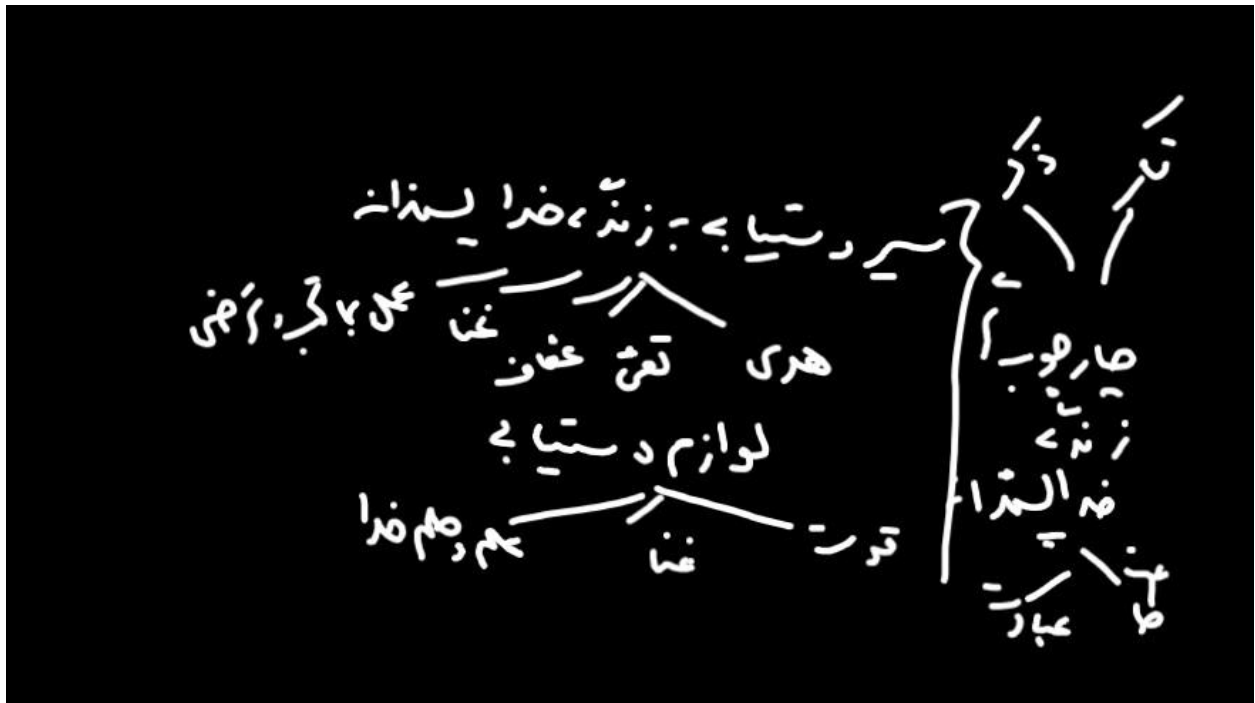 ذکر
چارچوب
زندگی
خدا پسندانه
عبادت
سیر دستیابی به زندگی خدا پسندانه
هدی تقی عفاف غنا عمل بما تحب و ترضی
لوازم دستیابی
قدرت غنا علم و حلم خدا